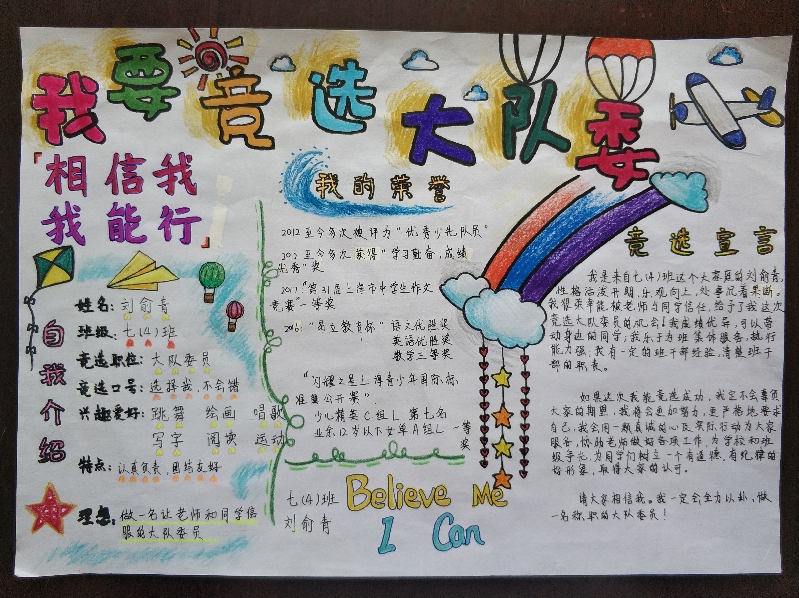 我要竞选大队委
「相信我
我能行」
自我介绍
姓名: 刘俞青
班级: 七(4)班
竞选职位: 大队委员
竞选口号: 选择我,不会错
兴趣爱好: 跳舞 绘画 唱歌
写字 阅读 运动
特点: 认真负责,团结友好
理想: 做一名让老师和同学信
服的大队委员
我的荣誉
2012至今多次被评为"优秀少先队员"
至今多次获得"学习勤奋,成绩
优秀"奖
"第31届上海市中学生作文
竞赛"一等奖
语文优胜奖
英语优胜奖
数学二等奖
"闪耀之星上海青少年国际标
准舞公开赛"
少儿精英C组L 第七名
业余12岁以下女单A组L 一等
奖
七(4)班
刘俞青
Believe Me
I Can
竞选宣言
我是来自七(4)班这个大家庭的刘俞青,
性格活泼开朗,乐观向上,处事沉着果断。
我很荣幸能被老师与同学信任,给予了我这次
竞选大队委员的机会!我成绩优异,可以带
动身边的同学;我乐于为班集体服务,执行
能力强,我有一定的班干部经验,清楚班干
部的职责。
如果这次我能竞选成功,我定不会辜负
大家的期望,我将会更加努力,更严格地要求
自己,我会用一颗真诚的心及实际行动为大家
服务,协助老师做好各项工作,为学校和班
级争光,为同学们树立一个有道德,有纪律的
好形象,取得大家的认可。
请大家相信我。我一定会全力以赴,做
一名称职的大队委员!